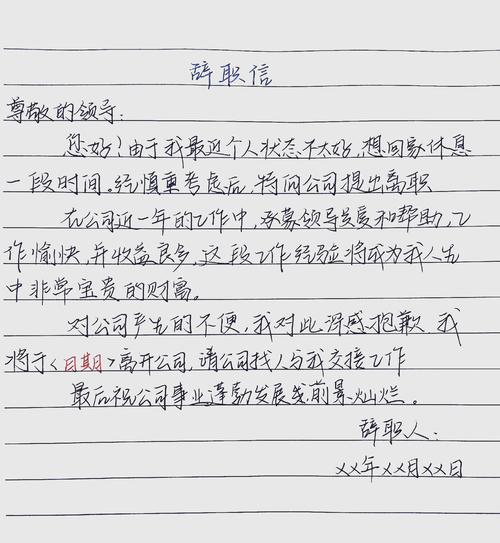 辞职信
尊敬的领导:
您好!由于我最近个人状态不太好,想回家休息
一段时间。经慎重考虑后,特向公司提出离职
在公司近一年的工作中,承蒙领导关爱和帮助,工
作愉快,并收益良多,这段工作经验将成为我人生
中非常宝贵的财富。
对公司产生的不便,我对此深感抱歉 我
将于<日期>离开公司,请公司找人与我交接工作
最后祝公司事业蓬勃发展 前景灿烂。
辞职人:
xx年xx月xx日